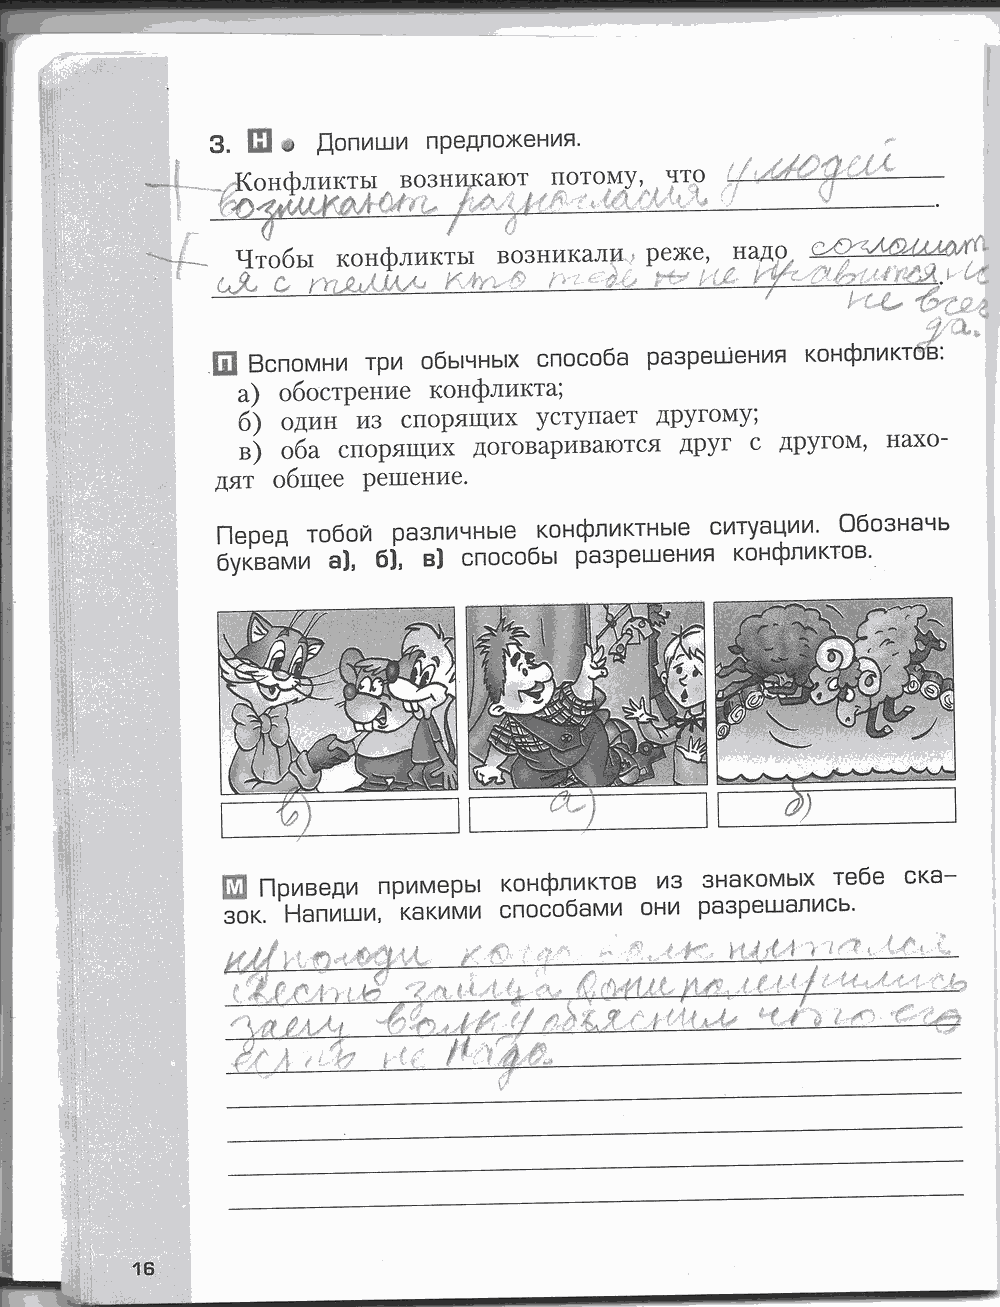 3. Н Допиши предложения.
Конфликты возникают потому, что у людей
возникают разногласия.
Чтобы конфликты возникали, реже, надо соглошат
ся с теми кто тебе не нравится, но
не всег
да.
П Вспомни три обычных способа разрешения конфликтов:
а) обострение конфликта;
б) один из спорящих уступает другому;
в) оба спорящих договариваются друг с другом, нахо-
дят общее решение.
Перед тобой различные конфликтные ситуации. Обозначь
буквами а), б), в) способы разрешения конфликтов.
в) а) б)
М Приведи примеры конфликтов из знакомых тебе ска-
зок. Напиши, какими способами они разрешались.
ну погоди когда волк пытался
сьесть зайца они помирились
заец волку объяснил что его
есть не надо.
16